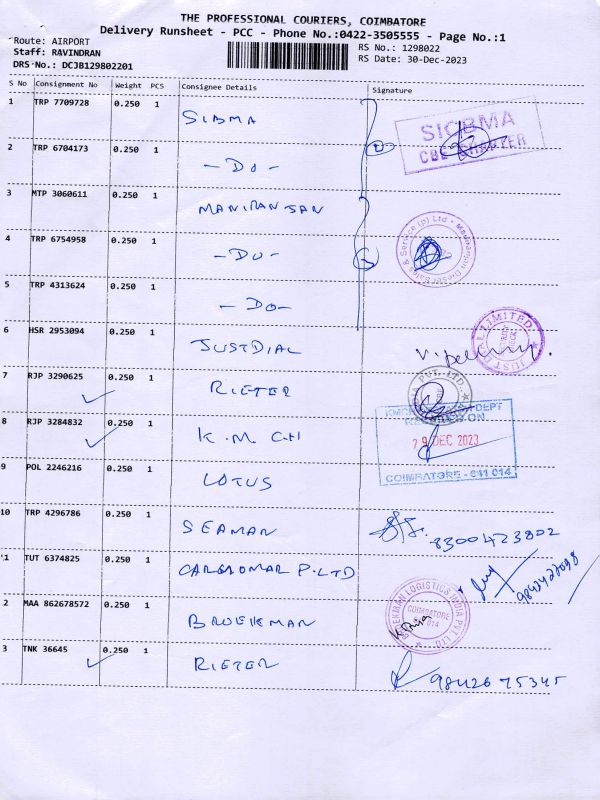 THE PROFESSIONAL COURIERS, COIMBATORE
Delivery Runsheet - PCC - Phone No.:0422-3505555 - Page No.:1
Route: AIRPORT
Staff: RAVINDRAN
DRS No.: DCJB129802201
RS No.: 1298022
RS Date: 30-Dec-2023
S No Consignment No Weight PCS Consignee Details Signature
1 TRP 7709728 0.250 1 SIBMA
SICBMA
CBE CHAPTER
2 TRP 6704173 0.250 1 -DO-
3 MTP 3060611 0.250 1 MANIRANJAN
4 TRP 6754958 0.250 1 -DO-
5 TRP 4313624 0.250 1 -DO-
6 HSR 2953094 0.250 1 JUSTDIAL
JUST DIAL LIMITED
7 RJP 3290625 0.250 1 RIETER
8 RJP 3284832 0.250 1 K.M.C.H
29 DEC 2023
COIMBATORE - 641 014
9 POL 2246216 0.250 1 LOTUS
10 TRP 4296786 0.250 1 SEAMAN 8300423802
11 TUT 6374825 0.250 1 P.LTD
2 MAA 862678572 0.250 1 BROEKMAN
BROEKMAN LOGISTICS INDIA PVT LTD
COIMBATORE
3 TNK 36645 0.250 1 RIETER 9842675345